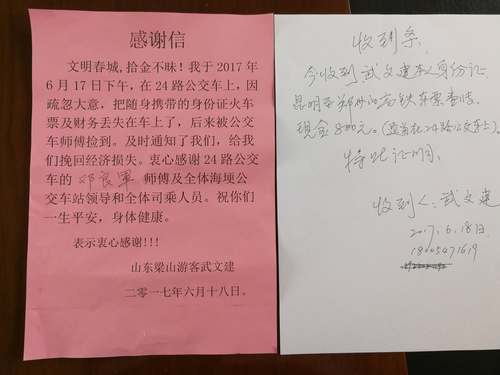 感谢信
文明春城,拾金不昧!我于2017
年6月17日下午,在24路公交车上,因
疏忽大意,把随身携带的身份证火车
票及财务丢失在车上了,后来被公交
车师傅捡到。及时通知了我们,给我
们挽回经济损失。衷心感谢24路公交
车的 邓良军 师傅及全体海埂公
交车站领导和全体司乘人员。祝你们
一生平安,身体健康。
表示衷心感谢!!!
山东梁山游客武文建
二零一七年六月十八日。
收到条
今收到武文建本人身份证
昆明至郑州的高铁车票壹张
现金800元。(遗失在24路公交车上)
特此证明。
收到人:武文建
2017.6.18日
18005471619